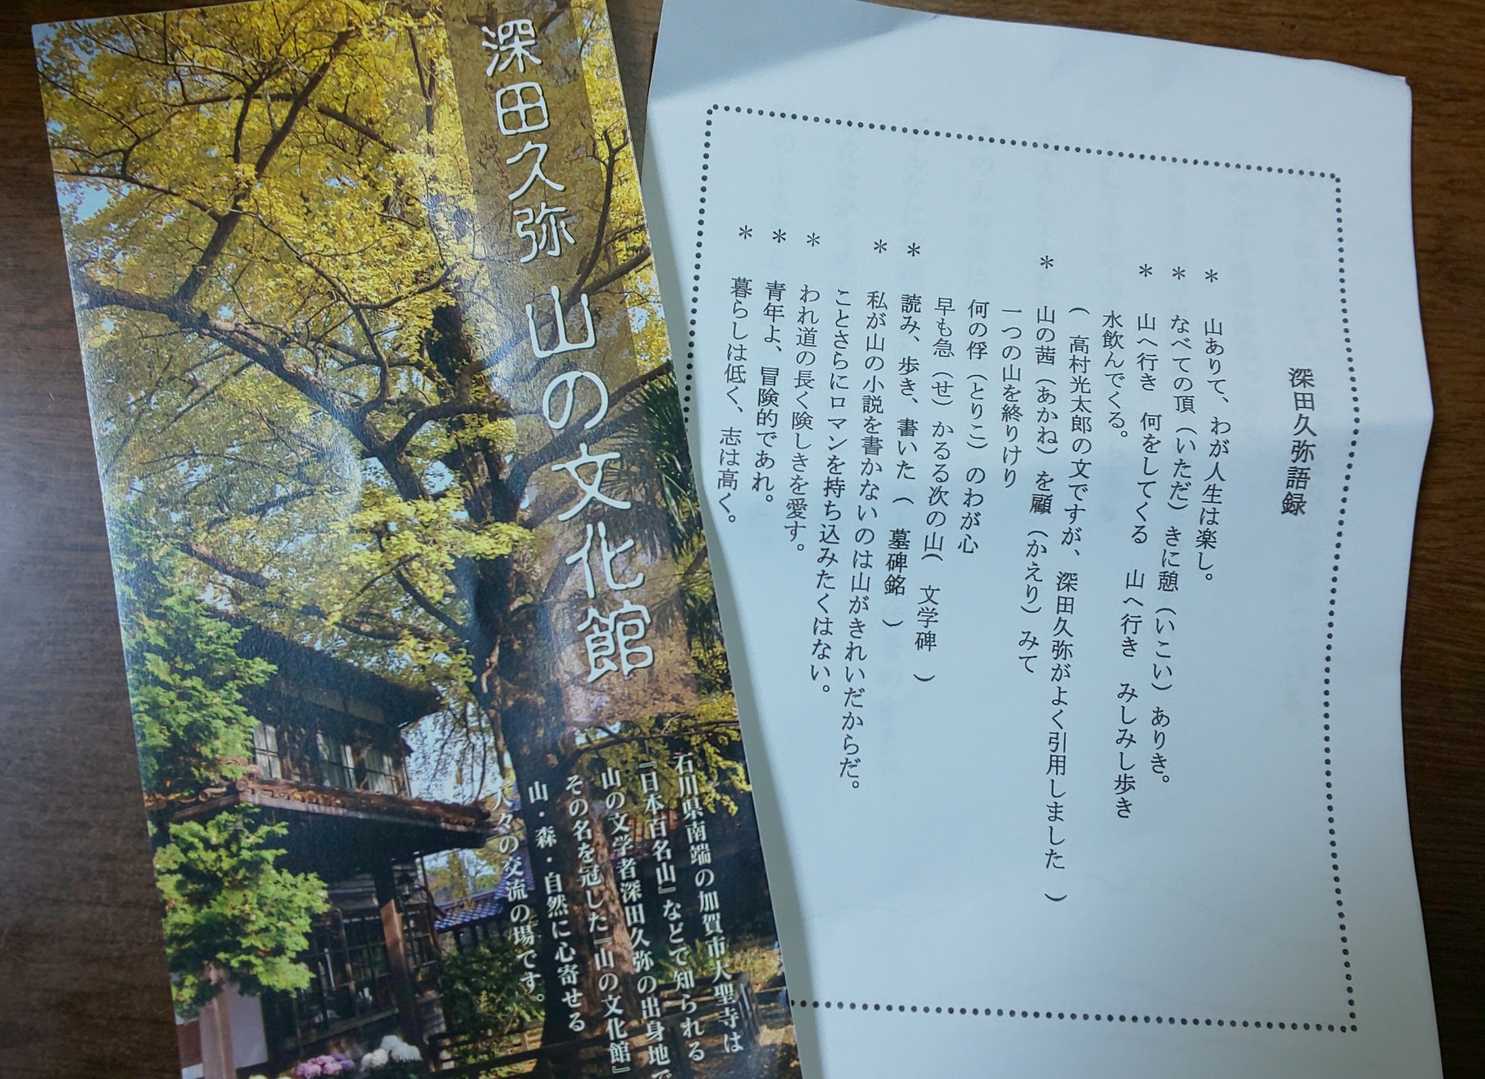 深田久弥 山の文化館
石川県南端の加賀市大聖寺は
『日本百名山』などで知られる
山の文学者深田久弥の出身地で
その名を冠した『山の文化館』
山・森・自然に心寄せる
人々の交流の場です。
深田久弥語録
＊ 山ありて、わが人生は楽し。
＊ なべての頂（いただ）きに憩（いこい）ありき。
＊ 山へ行き 何をしてくる 山へ行き みしみし歩き
水飲んでくる。
（ 高村光太郎の文ですが、深田久弥がよく引用しました ）
＊ 山の茜（あかね）を顧（かえり）みて
一つの山を終りけり
何の俘（とりこ）のわが心
早も急（せ）かるる次の山（ 文学碑 ）
＊ 読み、歩き、書いた（ 墓碑銘 ）
＊ 私が山の小説を書かないのは山がきれいだからだ。
ことさらにロマンを持ち込みたくはない。
＊ われ道の長く険しきを愛す。
＊ 青年よ、冒険的であれ。
＊ 暮らしは低く、志は高く。